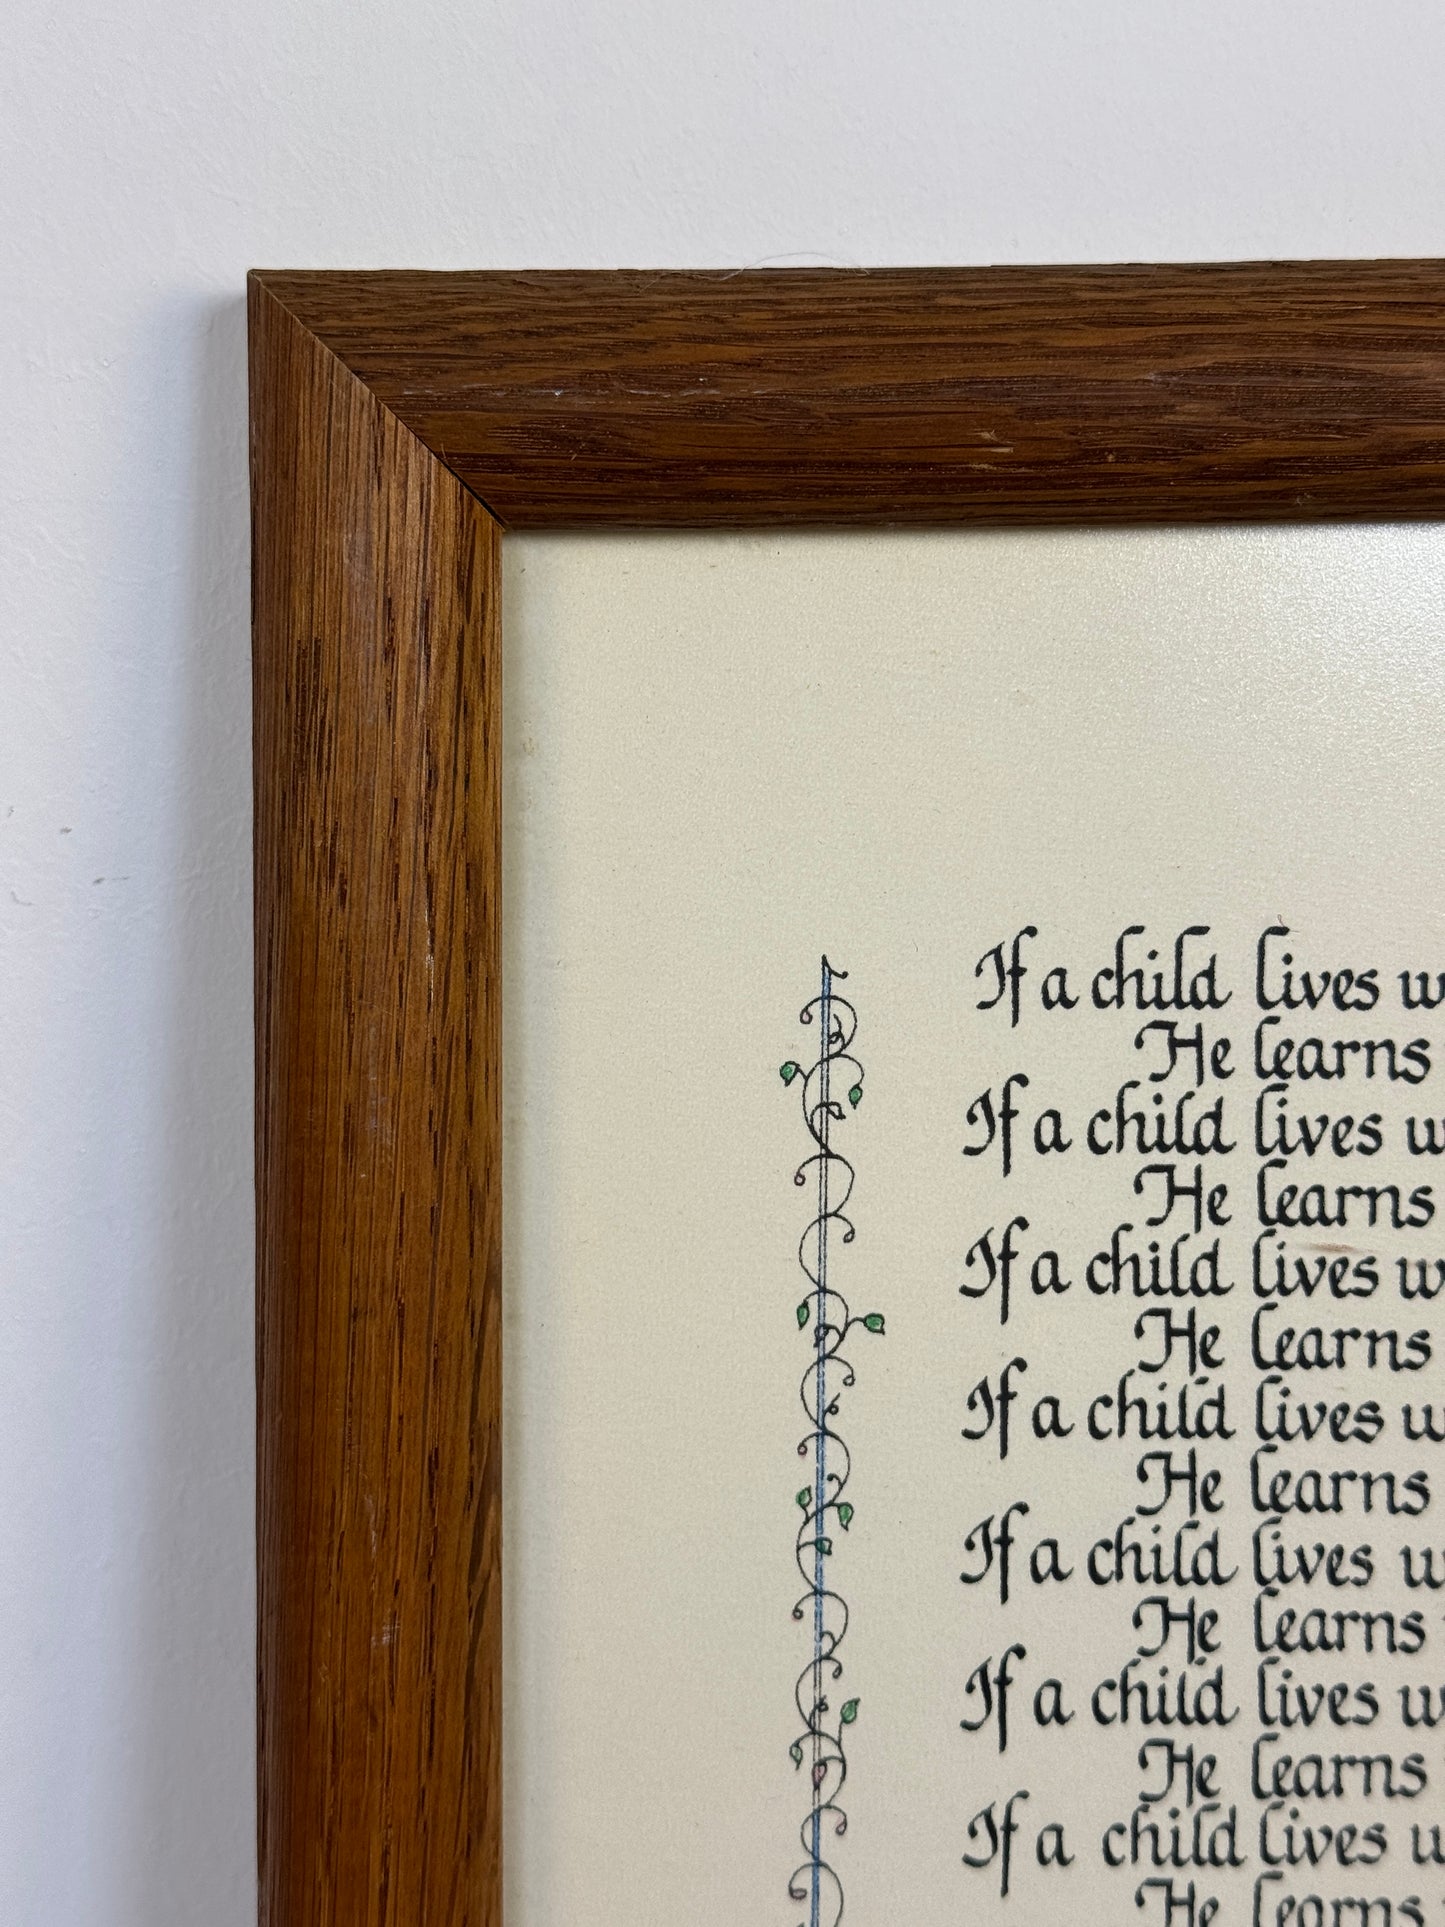 If a child lives
He learns
If a child lives
He learns
If a child lives
He learns
If a child lives
He learns
If a child lives
He learns
If a child lives
He learns
If a child lives
He learns